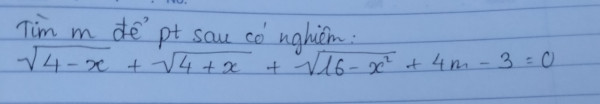 Tìm m để pt sau có nghiệm:
√4-x + √4+x + √16-x² + 4m - 3 = 0